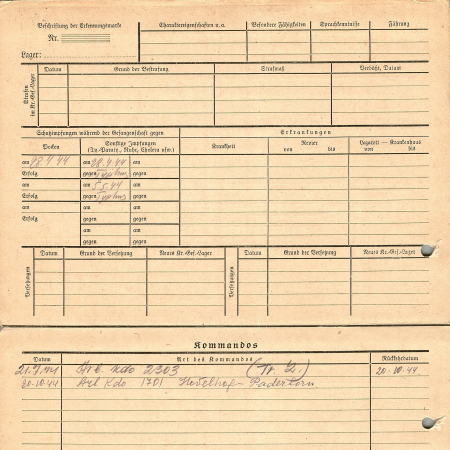 Beschriftung der Erkennungsmarke
Nr.
Lager:
Charaktereigenschaften u. a.
Besondere Fähigkeiten
Sprachkenntnisse
Führung
Strafen im Kr.-Gef.-Lager
Datum
Grund der Bestrafung
Strafmaß
Verbüßt, Datum
Schutzimpfungen während der Gefangenschaft gegen
Erkrankungen
Pocken
Sonstige Impfungen
(Ty.-Paraty., Ruhr, Cholera usw.)
Krankheit
Revier
von bis
Lazarett — Krankenhaus
von bis
am 28 4 44 am 28.4.44 am
Erfolg gegen Typhus gegen
am am 5.5.44 am
Erfolg gegen Typhus gegen
am am am
Erfolg gegen gegen
am am
gegen gegen
Versetzungen
Datum
Grund der Versetzung
Neues Kr.-Gef.-Lager
Versetzungen
Datum
Grund der Versetzung
Neues Kr.-Gef.-Lager
Kommandos
Datum
Art des Kommandos
Rückkehrdatum
21.7.44 Arb. Kdo 2303 20.10.44
20.10.44 Arb Kdo 1701 Hövelhof - Paderborn